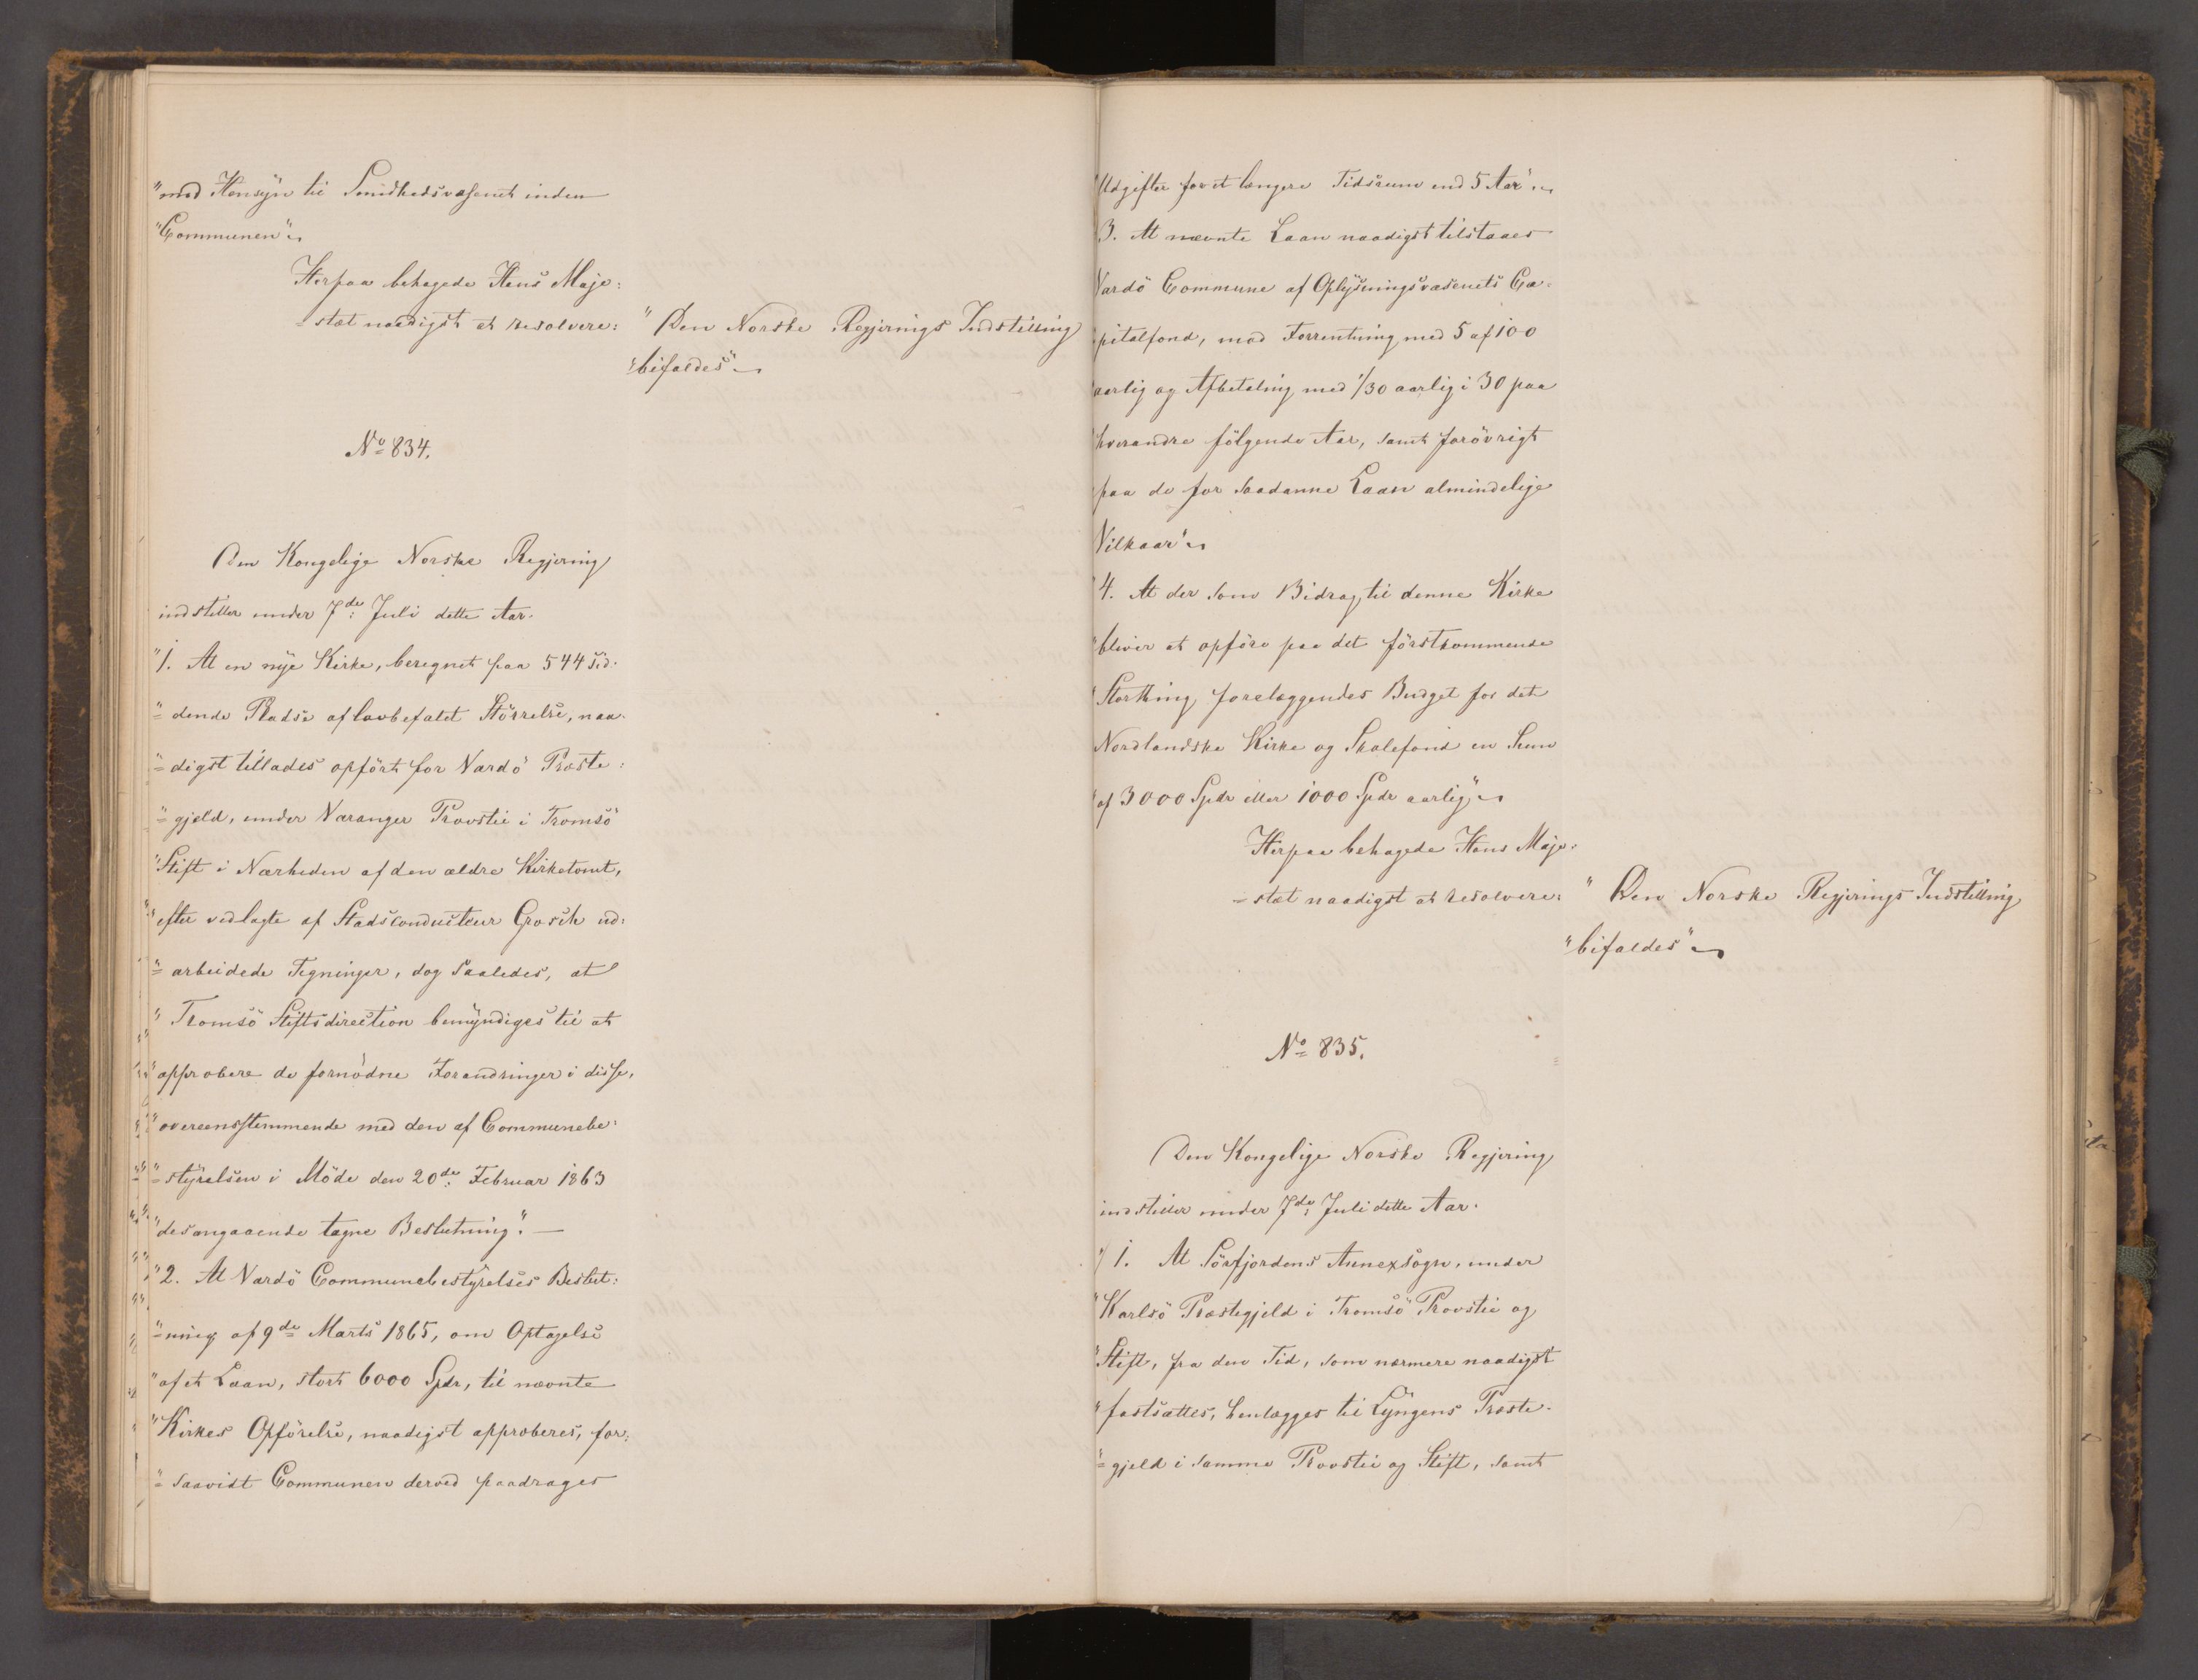 "med Hensÿn til Sundhedsvæsenet inden
"Communen".
Herpaa behagede Hans Maje:
=stæt naadigst at resolvere:
"Den Norske Regjerings Indstilling
"bifaldes".
No 834.
Den Kongelige Norske Regjering
indstiller under 7de Juli dette Aar.
"1. At en nÿe Kirke, beregnet paa 544 Sid.
"=dende Pladse af lovbefalet Störrelse, naa.
"=digst tillades opfört for Vardö Præste:
"=gjeld, under Varanger Provstie i Tromsö
"Stift i Nærheden af den ældre Kirketomt,
"efter vedlagte af Stadsconducteur Grosch ud:
"=arbeidede Tegninger, dog saaledes, at
"Tromsö Stiftsdirection bemÿndiges til at
"approbere de fornödne Forandringer i disse,
"overeensstemmende med den af Communebe:
"=stÿrelsen i Möde den 20de Februar 1863
"desangaaende tagne Beslutning". —
"2. At Vardö Communebestÿrelses Beslut:
"=ning af 9de Marts 1865, om Optagelse
"af et Laan, stort 6000 Spdr, til nævnte
"Kirkes Opförelse, naadigst approberes, for:
"=saavidt Communen derved paadrages
"Udgifter for et længere Tidsrum end 5 Aar".
"3. At nævnte Laan naadigst tilstaaes
"Vardö Commune af Oplÿsningsvæsenets Ca=
"pitalfond, mod Forrentning med 5 af 100
"aarlig og Afbetaling med 1/30 aarlig i 30 paa
"hverandre fölgende Aar, samt forövrigt
"paa de for saadanne Laan almindelige
"Vilkaar".
"4. At der som Bidrag til denne Kirke
"bliver at opföre paa det förstkommende
"Storthing forelæggendes Budget for det
"Nordlandske Kirke og Skolefond en Sum
"af 3000 Spdr eller 1000 Spdr aarlig".
Herpaa behagede Hans Maje:
=stæt naadigst at resolvere:
"Den Norske Regjerings Indstilling
"bifaldes".
No 835.
Den Kongelige Norske Regjering
indstiller under 7de Juli dette Aar.
"1. At Sörfjordens Annexsogn, under
"Karlsö Præstegjeld i Tromsö Provstie og
"Stift, fra den Tid, som nærmere naadigst
"fastsættes, henlægges til Lÿngens Præste.
"=gjeld i samme Provstie og Stift, samt